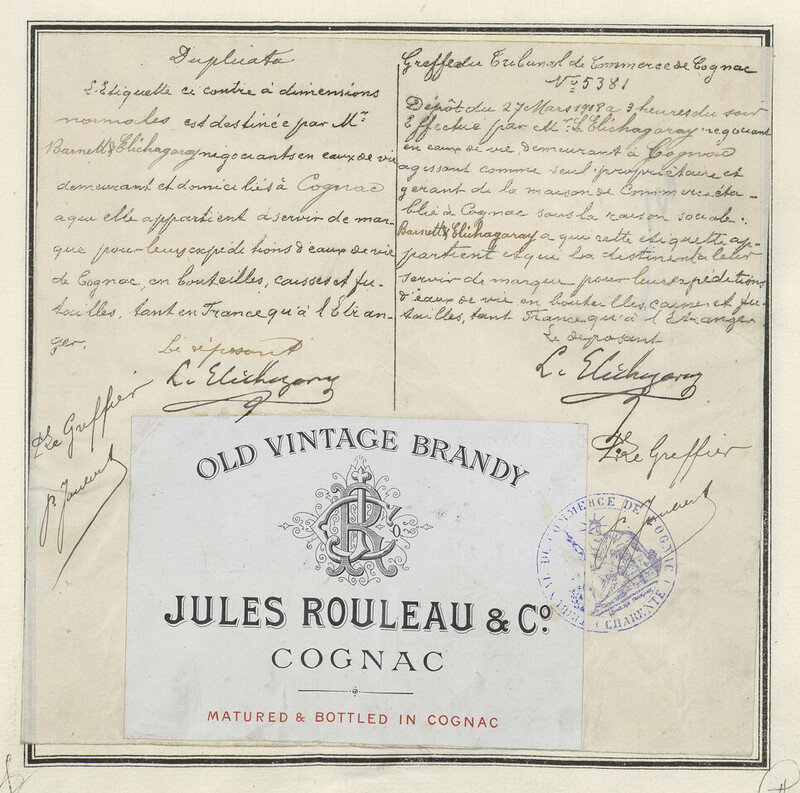 Duplicata
L'Etiquette ci contre à dimensions
normales est destinée par Mr.
Barnett & Elichagaray négociants en eaux de vie
demeurant et domiciliés à Cognac
a qui elle appartient à servir de mar-
que pour leurs expéditions d'eaux de vie
de Cognac, en bouteilles, caisses et fu-
tailles, tant en France qu'à l'Etran-
ger.
Le déposant
L. Elichagaray
Le Greffier
Greffe du Tribunal de Commerce de Cognac
No 5381
Dépôt du 27 Mars 1908 à 3 heures du soir
Effectué par Mr. L. Elichagaray négociant
en eaux de vie, demeurant à Cognac
agissant comme seul propriétaire et
gérant de la maison de Commerce éta-
blie à Cognac sous la raison sociale:
Barnett & Elichagaray a qui cette etiquette ap-
partient et qui la destinent à leur
servir de marque pour leurs expéditions
d'eaux de vie en bouteilles, caisses et fu-
tailles, tant France qu'à l'Etranger.
Le déposant
L. Elichagaray
Le Greffier
OLD VINTAGE BRANDY
JULES ROULEAU & Co.
COGNAC
MATURED & BOTTLED IN COGNAC
TRIBUNAL DE COMMERCE DE COGNAC
CHARENTE